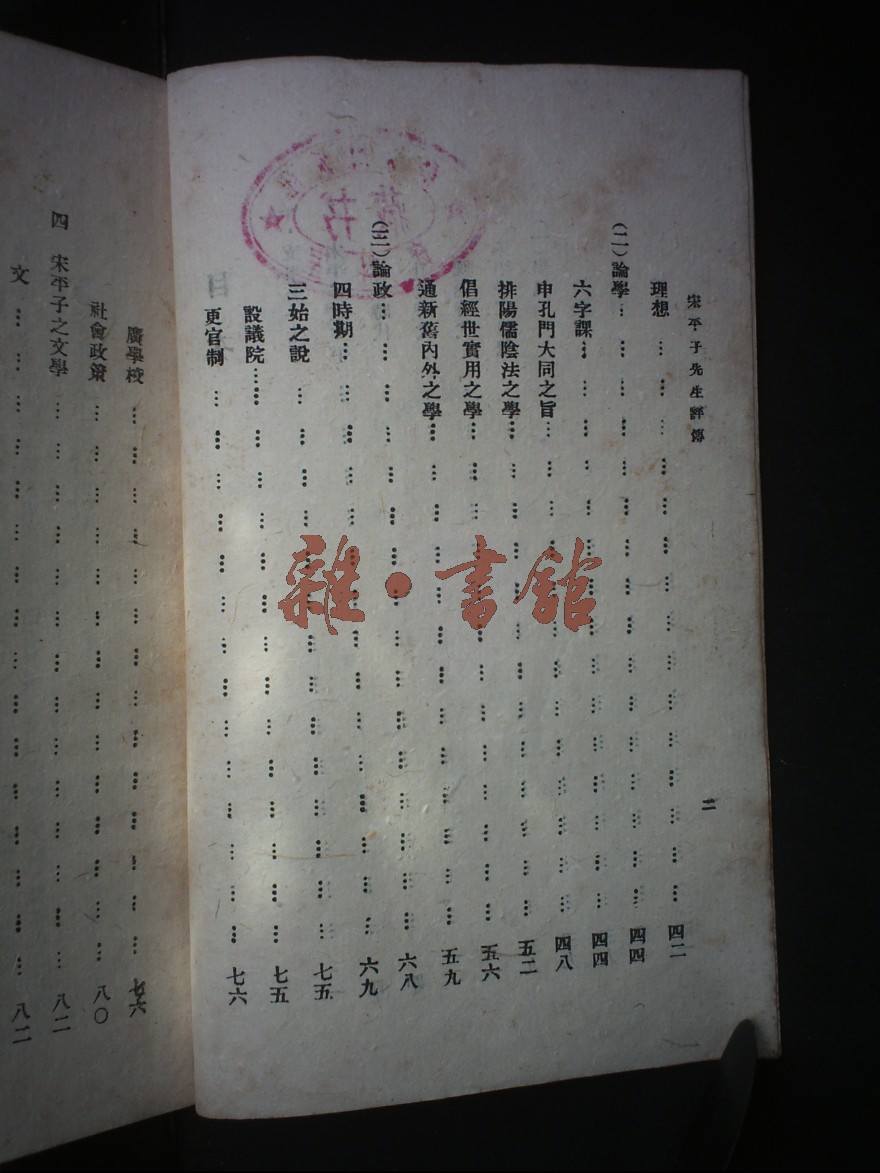 宋平子先生評傳
二
理想 … … … … … … … 四二
(二)論學 … … … … … … … 四四
六字課 … … … … … … … 四四
申孔門大同之旨 … … … … … … … 四八
排陽儒陰法之學 … … … … … … … 五二
倡經世實用之學 … … … … … … … 五六
通新舊內外之學 … … … … … … … 五九
(三)論政 … … … … … … … 六八
四時期 … … … … … … … 六九
三始之說 … … … … … … … 七五
設議院 … … … … … … … 七五
更官制 … … … … … … … 七六
廣學校 … … … … … … … 七六
社會政策 … … … … … … … 八〇
四 宋平子之文學 … … … … … … … 八二
文 … … … … … … … 八二
藏书
雜·書館